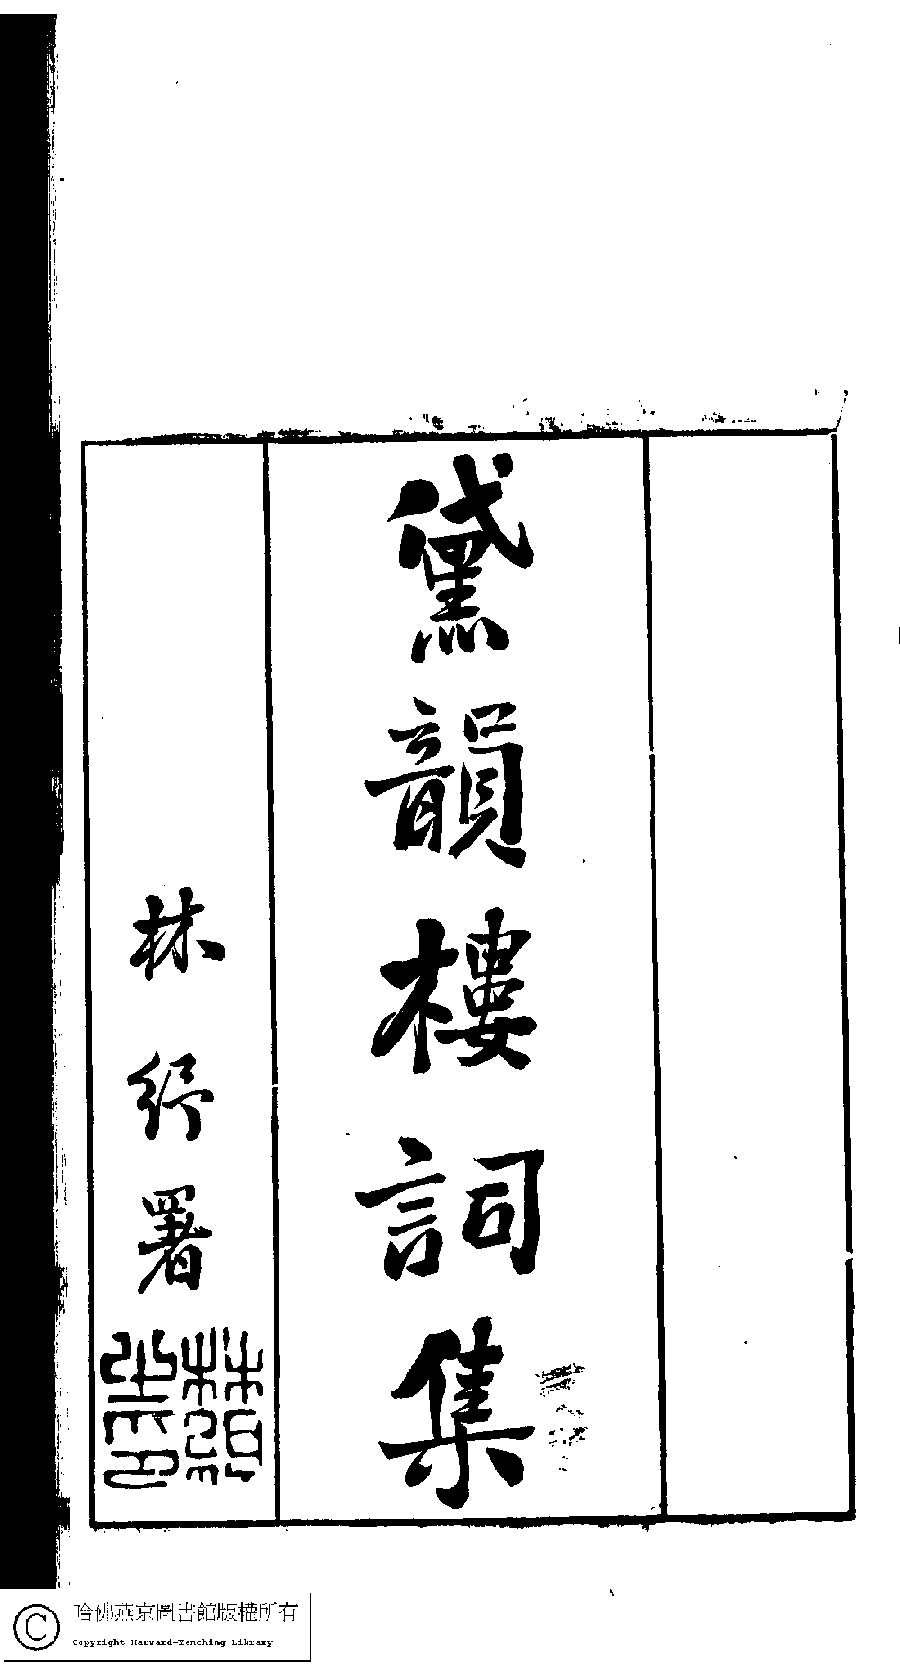 黛韻樓詞集
林紓署
哈佛燕京圖書館版權所有
Copyright Harvard-Yenching Library